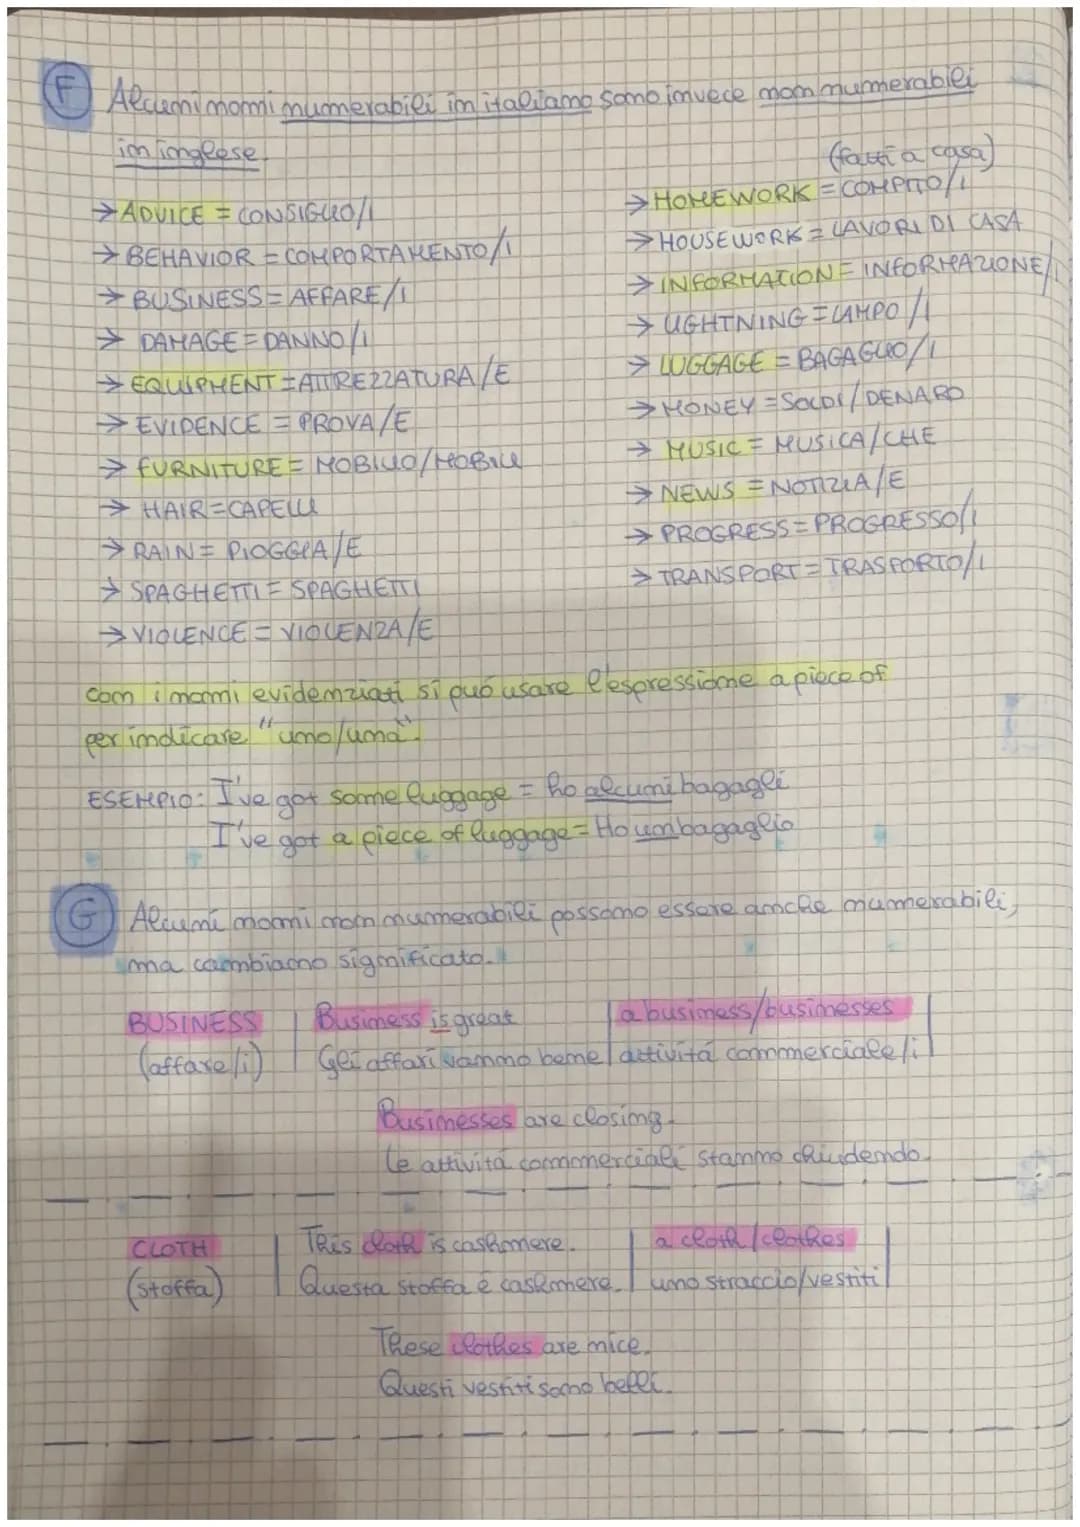 F Alcuni nomi numerabili in italiano sono invece non numerabili
in inglese.
→ ADVICE = CONSIGLIO/I
→ BEHAVIOR = COMPORTAMENTO/I
→ BUSINESS = AFFARE/I
→ DAMAGE = DANNO/I
→ EQUIPMENT = ATTREZZATURA/E
→ EVIDENCE = PROVA/E
→ FURNITURE = MOBILIO/MOBILI
→ HAIR = CAPELLI
→ RAIN = PIOGGIA/E
→ SPAGHETTI = SPAGHETTI
→ VIOLENCE = VIOLENZA/E
(fatti a casa)
→ HOMEWORK = COMPITO/I
→ HOUSEWORK = LAVORI DI CASA
→ INFORMATION = INFORMAZIONE/I
→ LIGHTNING = LAMPO/I
→ LUGGAGE = BAGAGLIO/I
→ MONEY = SOLDI/DENARO
→ MUSIC = MUSICA/CHE
→ NEWS = NOTIZIA/E
→ PROGRESS = PROGRESSO/I
→ TRANSPORT = TRASPORTO/I
con i nomi evidenziati si può usare l'espressione a piece of
per indicare "uno/una".
ESEMPIO: I've got some luggage = ho alcuni bagagli
I've got a piece of luggage = Ho un bagaglio
G Alcuni nomi non numerabili possono essere anche numerabili,
ma cambiano significato.
BUSINESS | Business is great | a business/businesses |
(affare/i) | Gli affari vanno bene | attività commerciale/i |
Businesses are closing.
Le attività commerciali stanno chiudendo.
CLOTH | This cloth is cashmere. | a cloth/clothes |
(stoffa) | Questa stoffa è cashmere. | uno straccio/vestiti |
These clothes are nice.
Questi vestiti sono belli.